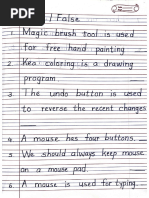 / False
1. Magic brush tool is used
for free hand painting
2. Kea coloring is a drawing
program.
3. The undo button is used
to reverse the recent changes
4. A mouse hes four buttons.
5. We should always keep mouse
on a mouse pad.
6. A mouse is used for typing.